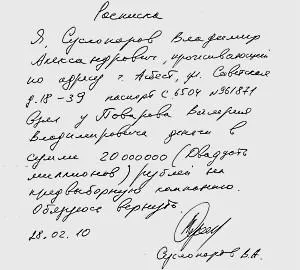 Росписка
Я, Суслопаров Владимир
Александрович, проживающий
по адресу г. Асбест, ул. Советская
д. 18-39 паспорт С 6504 №961871
взял у Поварова Валерия
Владимировича деньги в
сумме 20000000 (Двадцать
миллионов) рублей на
предвыборную компанию.
Обязуюсь вернуть.
28.02.10
Суслопаров В.А.